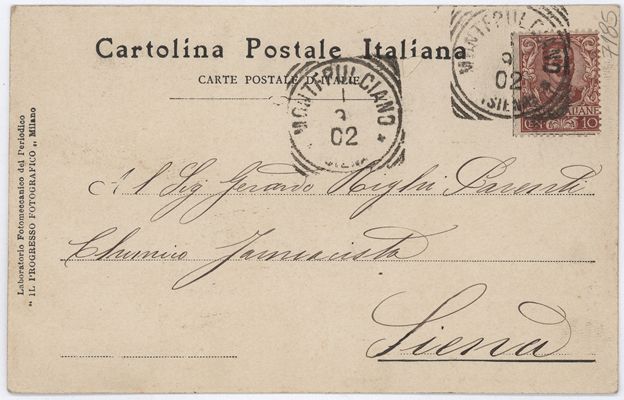 Cartolina Postale Italiana
CARTE POSTALE D'ITALIE
MONTEPULCIANO
1
9
02
(SIENA)
MONTEPULCIANO
9
02
(SIENA)
10
7185
Al Sig Gerardo Righi Parenti
Chimico Farmacista
Siena
Laboratorio Fotomeccanico del Periodico
" IL PROGRESSO FOTOGRAFICO „ Milano